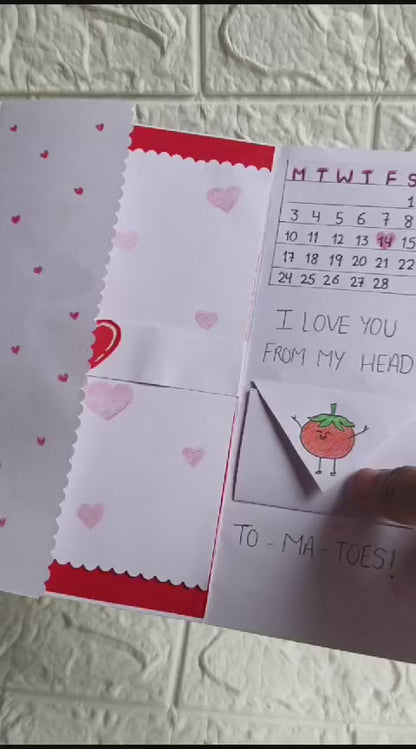 M T W T F S
1
3 4 5 6 7 8
10 11 12 13 14 15
17 18 19 20 21 22
24 25 26 27 28
I LOVE YOU
FROM MY HEAD
TO-MA-TOES!